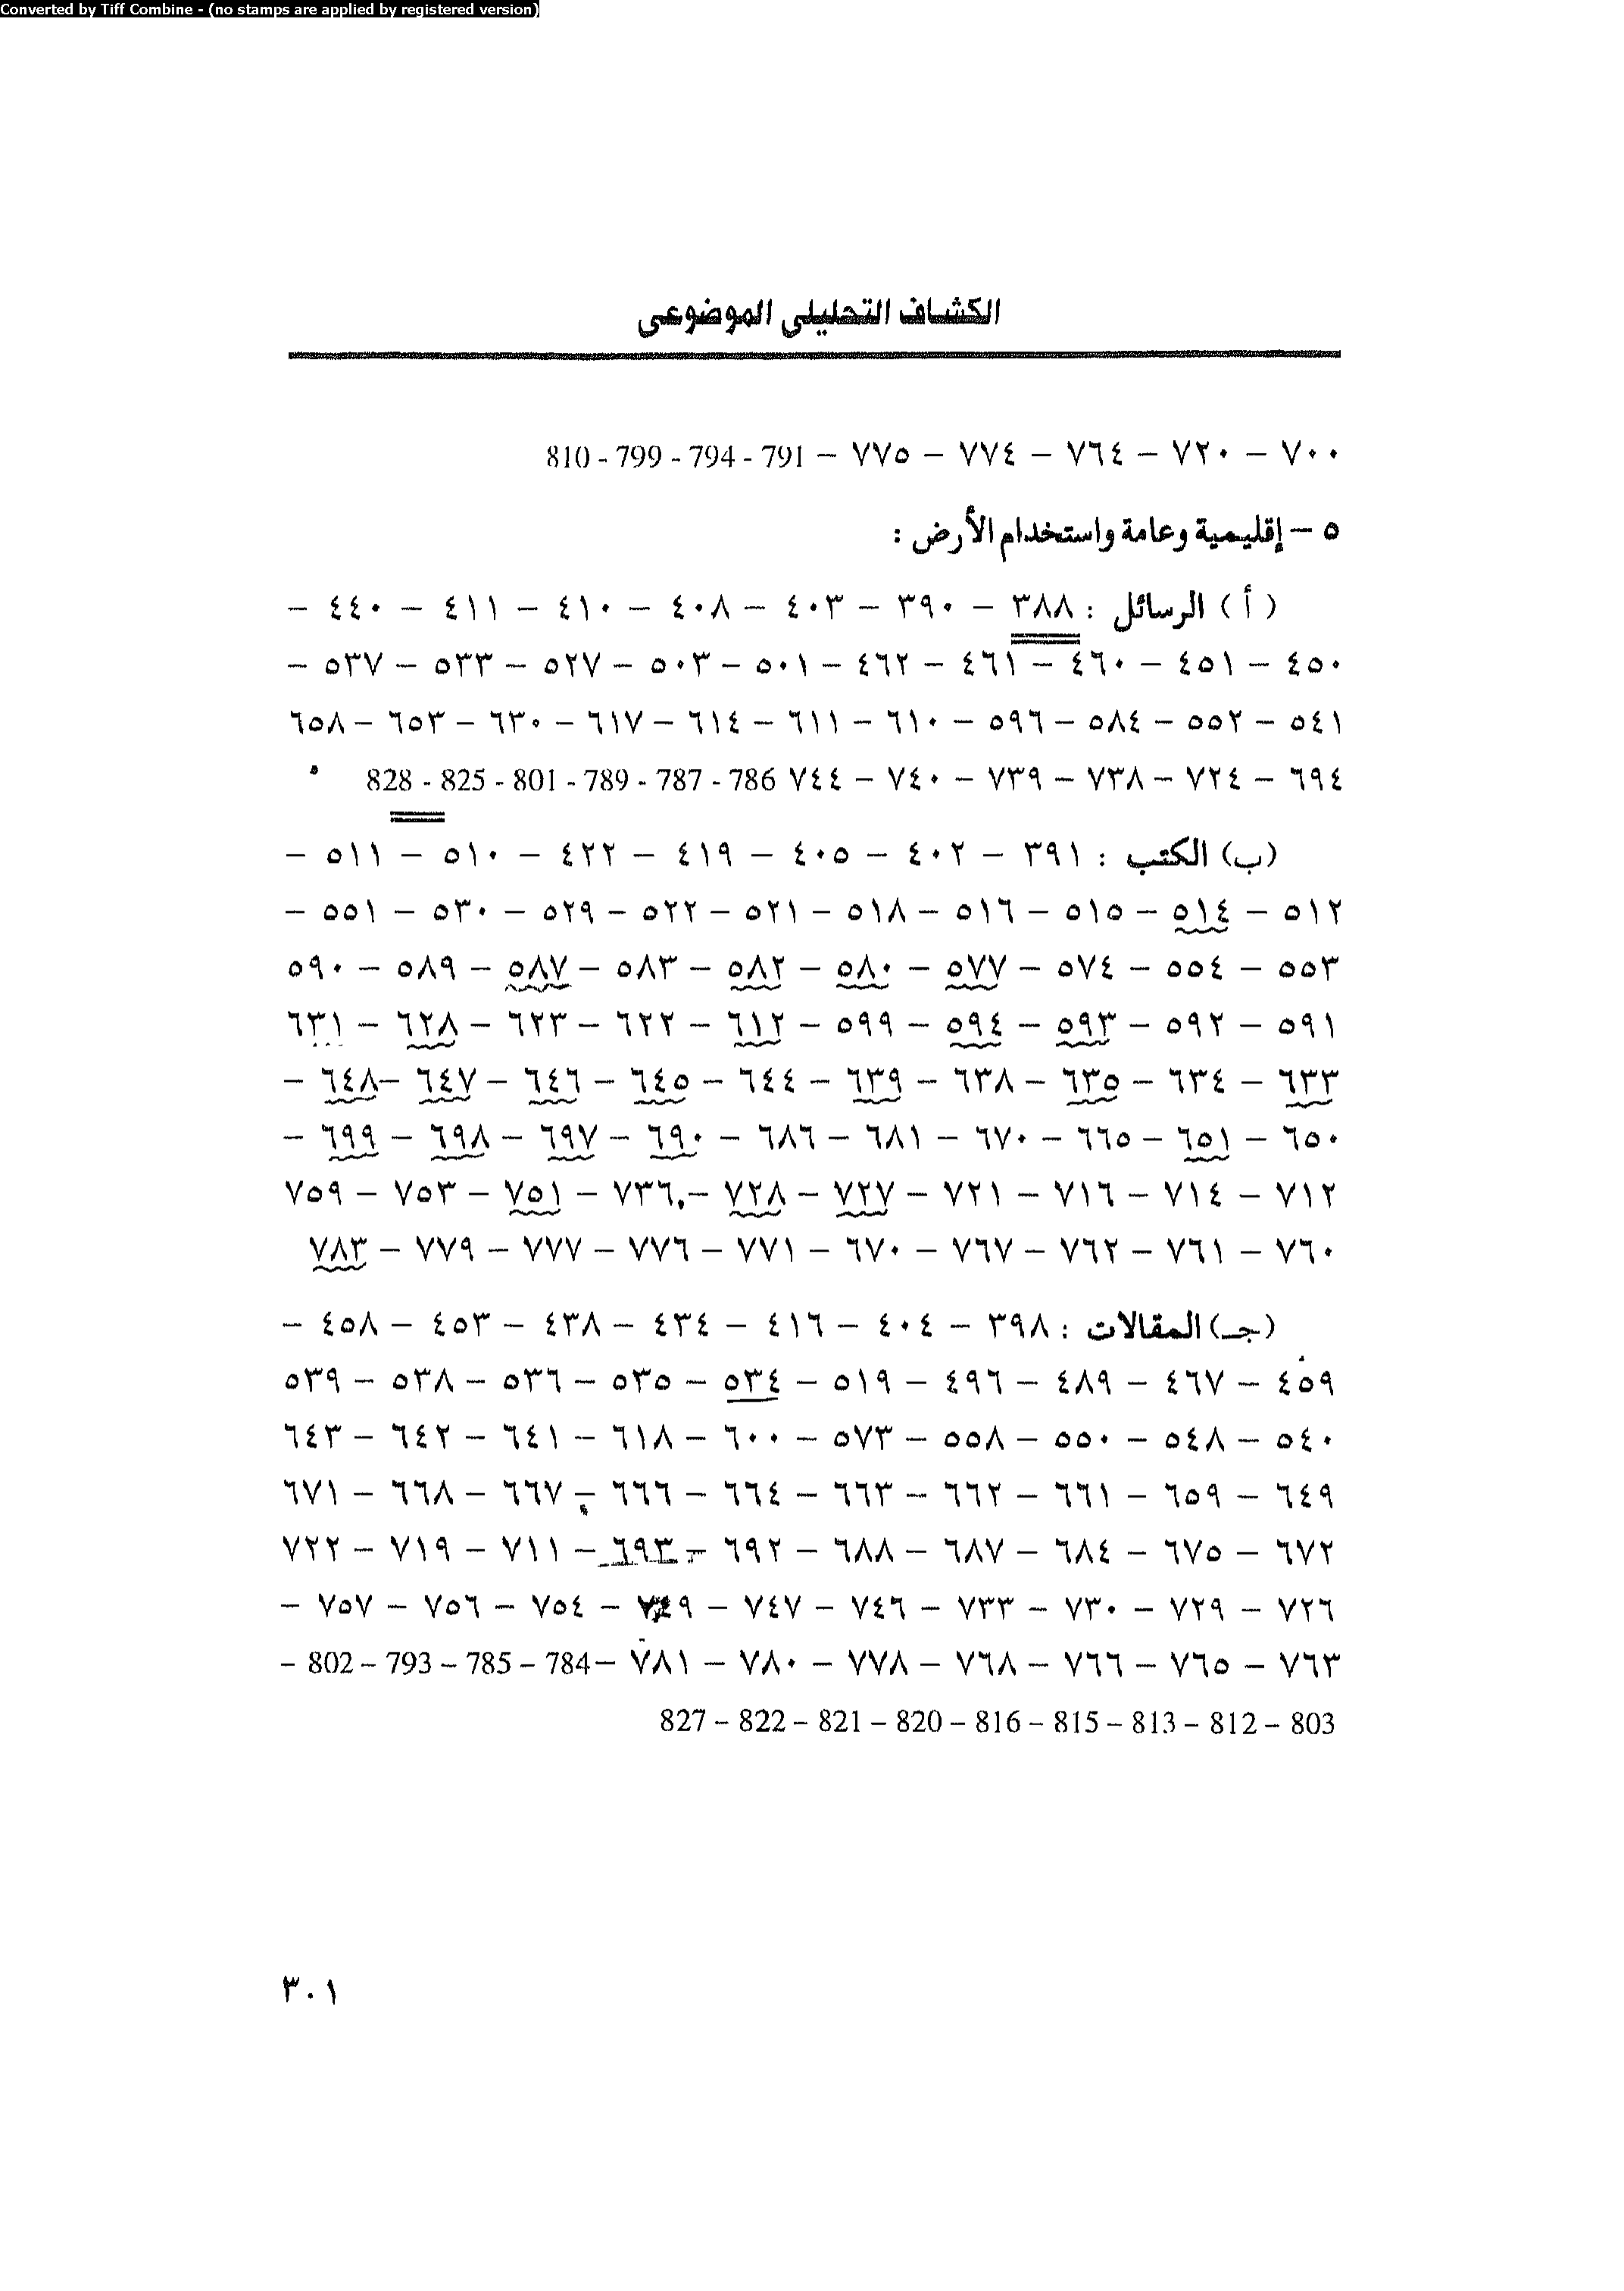 Converted by Tiff Combine - (no stamps are applied by registered version)
الكشاف التحليلى الموضوعى
٧٠٠ – ٧٢٠ – ٧٦٤ – ٧٧٤ – ٧٧٥ – 791 - 794 - 799 - 810
٥ – إقليمية وعامة واستخدام الأرض :
( أ ) الرسائل : ٣٨٨ – ٣٩٠ – ٤٠٣ – ٤٠٨ – ٤١٠ – ٤١١ – ٤٤٠ –
٤٥٠ – ٤٥١ – ٤٦٠ – ٤٦١ – ٤٦٢ – ٥٠١ – ٥٠٣ – ٥٢٧ – ٥٣٣ – ٥٣٧ –
٥٤١ – ٥٥٢ – ٥٨٤ – ٥٩٦ – ٦١٠ – ٦١١ – ٦١٤ – ٦١٧ – ٦٣٠ – ٦٥٣ – ٦٥٨
٦٩٤ – ٧٢٤ – ٧٣٨ – ٧٣٩ – ٧٤٠ – ٧٤٤ 786 - 787 - 789 - 801 - 825 - 828
(ب) الكتب : ٣٩١ – ٤٠٢ – ٤٠٥ – ٤١٩ – ٤٢٢ – ٥١٠ – ٥١١ –
٥١٢ – ٥١٤ – ٥١٥ – ٥١٦ – ٥١٨ – ٥٢١ – ٥٢٢ – ٥٢٩ – ٥٣٠ – ٥٥١ –
٥٥٣ – ٥٥٤ – ٥٧٤ – ٥٧٧ – ٥٨٠ – ٥٨٢ – ٥٨٣ – ٥٨٧ – ٥٨٩ – ٥٩٠
٥٩١ – ٥٩٢ – ٥٩٣ – ٥٩٤ – ٥٩٩ – ٦١٢ – ٦٢٢ – ٦٢٣ – ٦٢٨ – ٦٣١
٦٣٣ – ٦٣٤ – ٦٣٥ – ٦٣٨ – ٦٣٩ – ٦٤٤ – ٦٤٥ – ٦٤٦ – ٦٤٧ –٦٤٨ –
٦٥٠ – ٦٥١ – ٦٦٥ – ٦٧٠ – ٦٨١ – ٦٨٦ – ٦٩٠ – ٦٩٧ – ٦٩٨ – ٦٩٩ –
٧١٢ – ٧١٤ – ٧١٦ – ٧٢١ – ٧٢٧ – ٧٢٨ – ٧٣٦ – ٧٥١ – ٧٥٣ – ٧٥٩
٧٦٠ – ٧٦١ – ٧٦٢ – ٧٦٧ – ٦٧٠ – ٧٧١ – ٧٧٦ – ٧٧٧ – ٧٧٩ – ٧٨٣
(جـ) المقالات : ٣٩٨ – ٤٠٤ – ٤١٦ – ٤٣٤ – ٤٣٨ – ٤٥٣ – ٤٥٨ –
٤٥٩ – ٤٦٧ – ٤٨٩ – ٤٩٦ – ٥١٩ – ٥٣٤ – ٥٣٥ – ٥٣٦ – ٥٣٨ – ٥٣٩
٥٤٠ – ٥٤٨ – ٥٥٠ – ٥٥٨ – ٥٧٣ – ٦٠٠ – ٦١٨ – ٦٤١ – ٦٤٢ – ٦٤٣
٦٤٩ – ٦٥٩ – ٦٦١ – ٦٦٢ – ٦٦٣ – ٦٦٤ – ٦٦٦ – ٦٦٧ – ٦٦٨ – ٦٧١
٦٧٢ – ٦٧٥ – ٦٨٤ – ٦٨٧ – ٦٨٨ – ٦٩٢ – ٦٩٣ – ٧١١ – ٧١٩ – ٧٢٢
٧٢٦ – ٧٢٩ – ٧٣٠ – ٧٣٣ – ٧٤٦ – ٧٤٧ – ٧٤٩ – ٧٥٤ – ٧٥٦ – ٧٥٧ –
٧٦٣ – ٧٦٥ – ٧٦٦ – ٧٦٨ – ٧٧٨ – ٧٨٠ – ٧٨١ –784 – 785 – 793 – 802 –
803 – 812 – 813 – 815 – 816 – 820 – 821 – 822 – 827
٣٠١